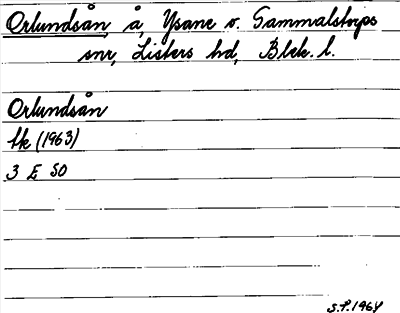 Orlundsån, å, Ysane o. Gammalstorps
snr, Listers hd, Blek. l.
Orlundsån
tk (1963)
3 E SO
S.P. 1964